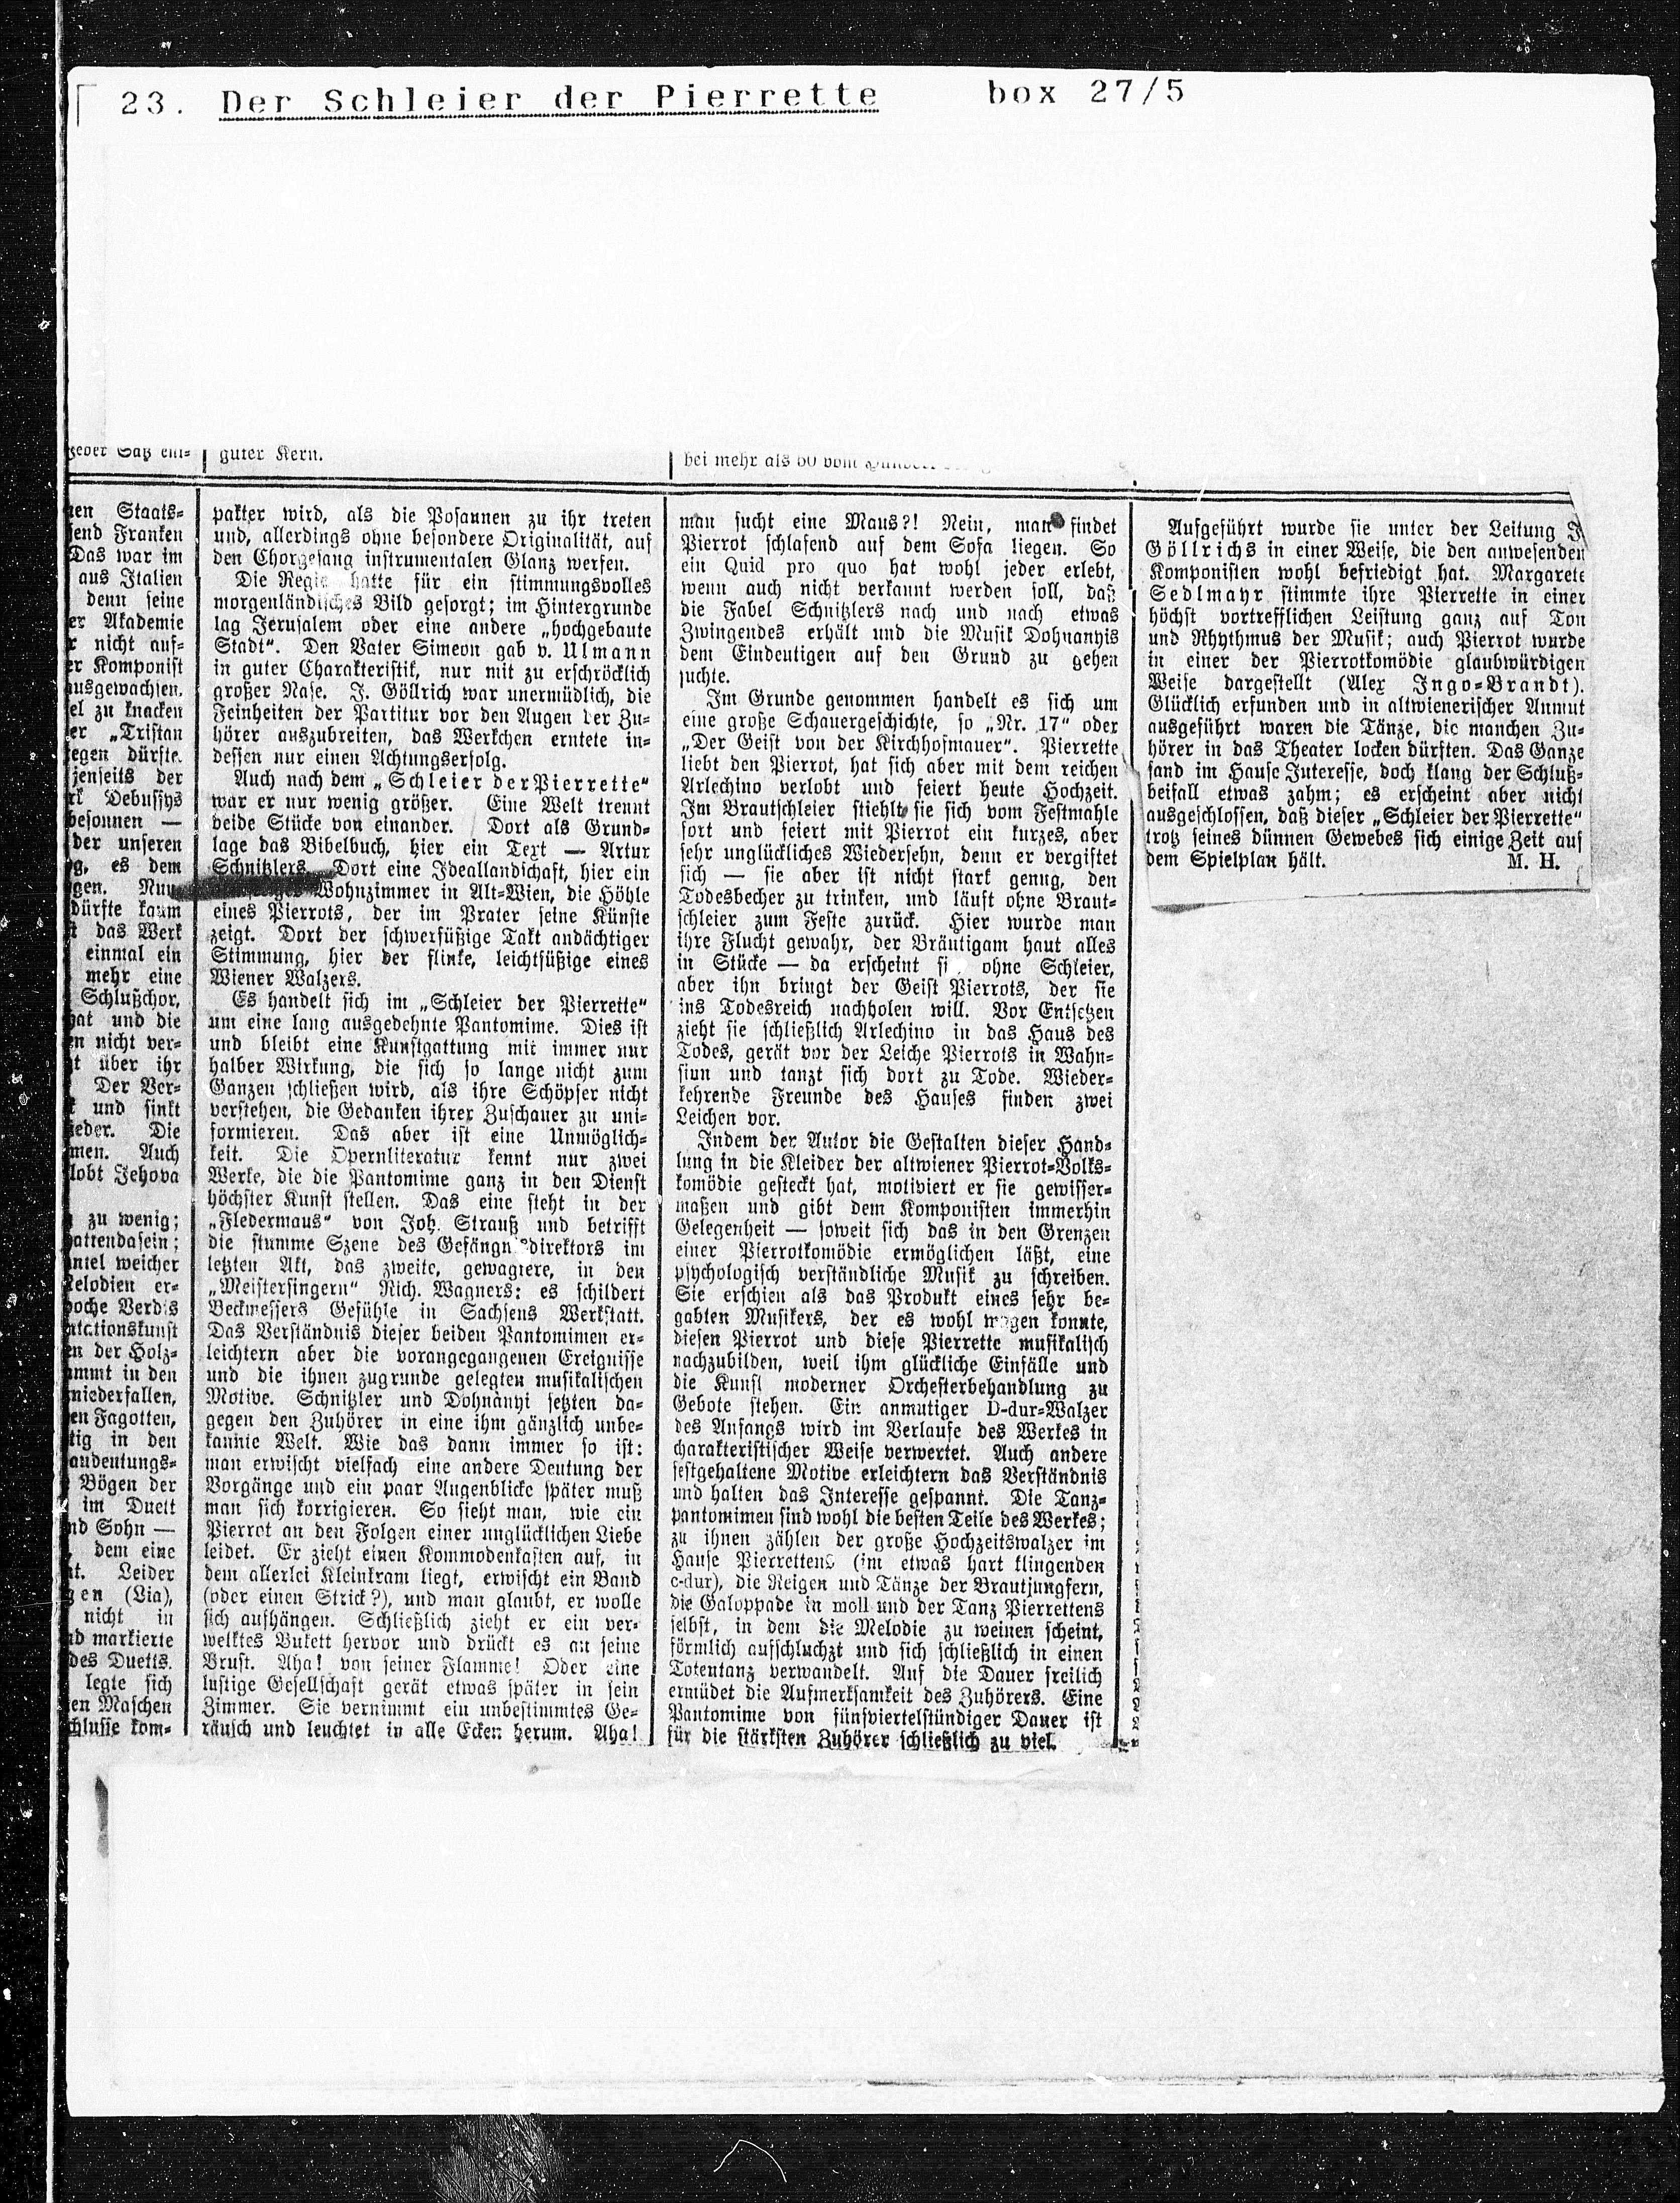 23. Der Schleier der Pierrette box 27/5
guter Kern.
bei mehr als 60 vom
nen Staats-
send Franken
Das war im
aus Italien
denn seine
er Akademie
r nicht auf-
er Komponist
ausgewachsen.
el zu knacken
er „Tristan
egen dürfte.
jenseits der
rk Debussys
besonnen —
der unseren
g, es dem
gen. Nun
dürfte kaum
st das Werk
einmal ein
mehr eine
Schlußchor,
hat und die
en nicht ver-
t über ihr
Der Ver-
t und sinkt
ieder. Die
men. Auch
lobt Jehova
zu wenig;
attendasein;
antel weicher
Melodien er-
poche Verdis
ntationskunst
en der Holz-
ammt in den
niederfallen,
en Fagotten,
tig in den
andeutungs-
Bögen der
im Duett
nd Sohn —
dem eine
t. Leider
gen (Lia),
nicht in
nd markierte
des Duetts.
legte sich
en Maschen
chlusse kom-
pakter wird, als die Posaunen zu ihr treten
und, allerdings ohne besondere Originalität, auf
den Chorgesang instrumentalen Glanz werfen.
Die Regie hatte für ein stimmungsvolles
morgenländisches Bild gesorgt; im Hintergrunde
lag Jerusalem oder eine andere „hochgebaute
Stadt“. Den Vater Simeon gab v. Ulmann
in guter Charakteristik, nur mit zu erschröcklich
großer Nase. J. Göllrich war unermüdlich, die
Feinheiten der Partitur vor den Augen der Zu-
hörer auszubreiten, das Werkchen erntete in-
dessen nur einen Achtungserfolg.
Auch nach dem „Schleier der Pierrette“
war er nur wenig größer. Eine Welt trennt
beide Stücke von einander. Dort als Grund-
lage das Bibelbuch, hier ein Text — Artur
Schnitzlers. Dort eine Ideallandschaft, hier ein
Wohnzimmer in Alt-Wien, die Höhle
eines Pierrots, der im Prater seine Künste
zeigt. Dort der schwerfüßige Takt andächtiger
Stimmung, hier der flinke, leichtfüßige eines
Wiener Walzers.
Es handelt sich im „Schleier der Pierrette“
um eine lang ausgedehnte Pantomime. Dies ist
und bleibt eine Kunstgattung mit immer nur
halber Wirkung, die sich so lange nicht zum
Ganzen schließen wird, als ihre Schöpfer nicht
verstehen, die Gedanken ihrer Zuschauer zu uni-
formieren. Das aber ist eine Unmöglich-
keit. Die Opernliteratur kennt nur zwei
Werke, die die Pantomime ganz in den Dienst
höchster Kunst stellen. Das eine steht in der
„Fledermaus“ von Joh. Strauß und betrifft
die stumme Szene des Gefängnisdirektors im
letzten Akt, das zweite, gewagtere, in den
„Meistersingern“ Rich. Wagners: es schildert
Beckmessers Gefühle in Sachsens Werkstatt.
Das Verständnis dieser beiden Pantomimen er-
leichtern aber die vorangegangenen Ereignisse
und die ihnen zugrunde gelegten musikalischen
Motive. Schnitzler und Dohnànyi setzten da-
gegen den Zuhörer in eine ihm gänzlich unbe-
kannte Welt. Wie das dann immer so ist:
man erwischt vielfach eine andere Deutung der
Vorgänge und ein paar Augenblicke später muß
man sich korrigieren. So sieht man, wie ein
Pierrot an den Folgen einer unglücklichen Liebe
leidet. Er zieht einen Kommodenkasten auf, in
dem allerlei Kleinkram liegt, erwischt ein Band
(oder einen Strick?), und man glaubt, er wolle
sich aufhängen. Schließlich zieht er ein ver-
welktes Bukett hervor und drückt es an seine
Brust. Aha! von seiner Flamme! Oder eine
lustige Gesellschaft gerät etwas später in sein
Zimmer. Sie vernimmt ein unbestimmtes Ge-
räusch und leuchtet in alle Ecken herum. Aha!
man sucht eine Maus?! Nein, man findet
Pierrot schlafend auf dem Sofa liegen. So
ein Quid pro quo hat wohl jeder erlebt,
wenn auch nicht verkannt werden soll, daß
die Fabel Schnitzlers nach und nach etwas
Zwingendes erhält und die Musik Dohnanyis
dem Eindeutigen auf den Grund zu gehen
suchte.
Im Grunde genommen handelt es sich um
eine große Schauergeschichte, so „Nr. 17“ oder
„Der Geist von der Kirchhofmauer“. Pierrette
liebt den Pierrot, hat sich aber mit dem reichen
Arlechino verlobt und feiert heute Hochzeit.
Im Brautschleier stiehlt sie sich vom Festmahle
fort und feiert mit Pierrot ein kurzes, aber
sehr unglückliches Wiedersehn, denn er vergiftet
sich — sie aber ist nicht stark genug, den
Todesbecher zu trinken, und läuft ohne Braut-
schleier zum Feste zurück. Hier wurde man
ihre Flucht gewahr, der Bräutigam haut alles
in Stücke — da erscheint si ohne Schleier,
aber ihn bringt der Geist Pierrots, der sie
ins Todesreich nachholen will. Vor Entsetzen
zieht sie schließlich Arlechino in das Haus des
Todes, gerät vor der Leiche Pierrots in Wahn-
sinn und tanzt sich dort zu Tode. Wieder-
kehrende Freunde des Hauses finden zwei
Leichen vor.
Indem der Autor die Gestalten dieser Hand-
lung in die Kleider der altwiener Pierrot-Volks-
komödie gesteckt hat, motiviert er sie gewisser-
maßen und gibt dem Komponisten immerhin
Gelegenheit — soweit sich das in den Grenzen
einer Pierrotkomödie ermöglichen läßt, eine
psychologisch verständliche Musik zu schreiben.
Sie erschien als das Produkt eines sehr be-
gabten Musikers, der es wohl wagen konnte,
diesen Pierrot und diese Pierrette musikalisch
nachzubilden, weil ihm glückliche Einfälle und
die Kunst moderner Orchesterbehandlung zu
Gebote stehen. Ein anmutiger D-dur-Walzer
des Anfangs wird im Verlaufe des Werkes in
charakteristischer Weise verwertet. Auch andere
festgehaltene Motive erleichtern das Verständnis
und halten das Interesse gespannt. Die Tanz-
pantomimen sind wohl die besten Teile des Werkes;
zu ihnen zählen der große Hochzeitswalzer im
Hause Pierrettens (im etwas hart klingenden
c-dur), die Reigen und Tänze der Brautjungfern,
die Galoppade in moll und der Tanz Pierrettens
selbst, in dem die Melodie zu weinen scheint,
förmlich aufschluchzt und sich schließlich in einen
Totentanz verwandelt. Auf die Dauer freilich
ermüdet die Aufmerksamkeit des Zuhörers. Eine
Pantomime von fünfviertelstündiger Dauer ist
für die stärksten Zuhörer schließlich zu viel.
Aufgeführt wurde sie unter der Leitung J.
Göllrichs in einer Weise, die den anwesenden
Komponisten wohl befriedigt hat. Margarete
Sedlmayr stimmte ihre Pierrette in einer
höchst vortrefflichen Leistung ganz auf Ton
und Rhythmus der Musik; auch Pierrot wurde
in einer der Pierrotkomödie glaubwürdigen
Weise dargestellt (Alex Ingo-Brandt).
Glücklich erfunden und in altwienerischer Anmut
ausgeführt waren die Tänze, die manchen Zu-
hörer in das Theater locken dürften. Das Ganze
fand im Hause Interesse, doch klang der Schluß-
beifall etwas zahm; es erscheint aber nicht
ausgeschlossen, daß dieser „Schleier der Pierrette“
trotz seines dünnen Gewebes sich einige Zeit auf
dem Spielplan hält. M. H.